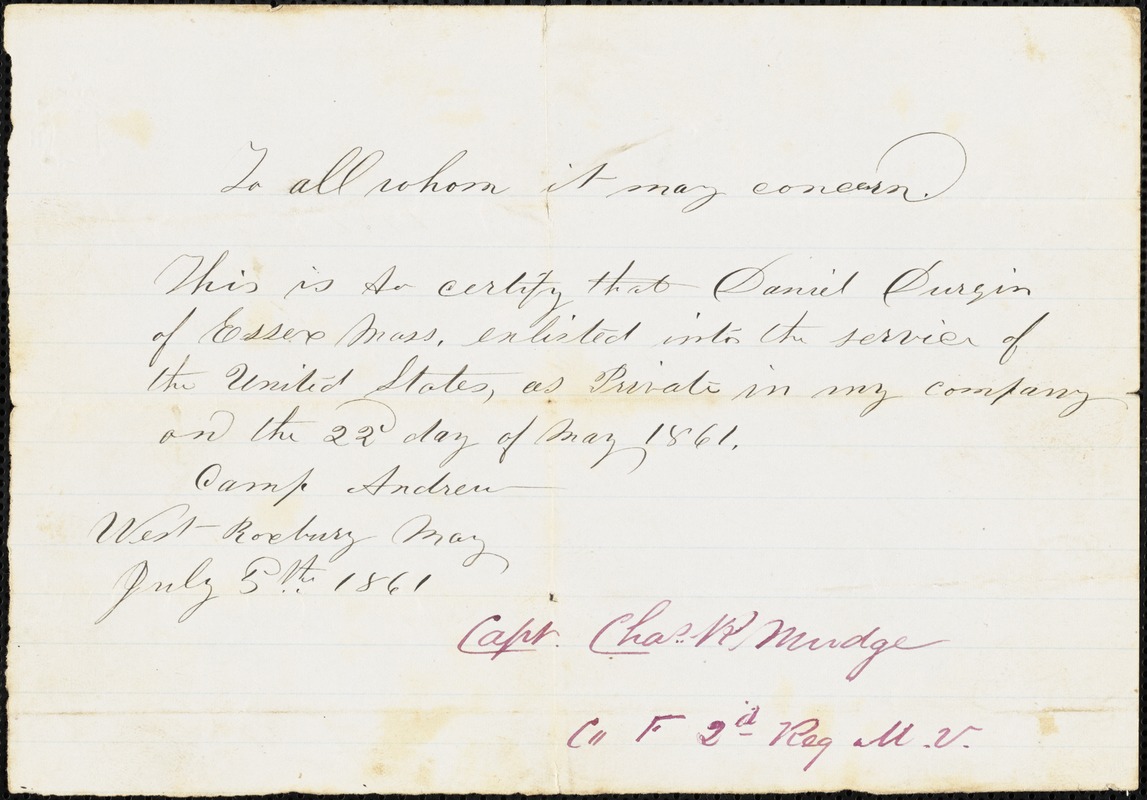 To all whom it may concern.
This is to certify that Daniel Durgin
of Essex Mass. enlisted into the service of
the United States, as Private in my company
on the 22d day of May 1861.
Camp Andrew
West Roxbury May
July 5th 1861
Capt. Chas. R. Mudge
Co F 2d Reg M.V.